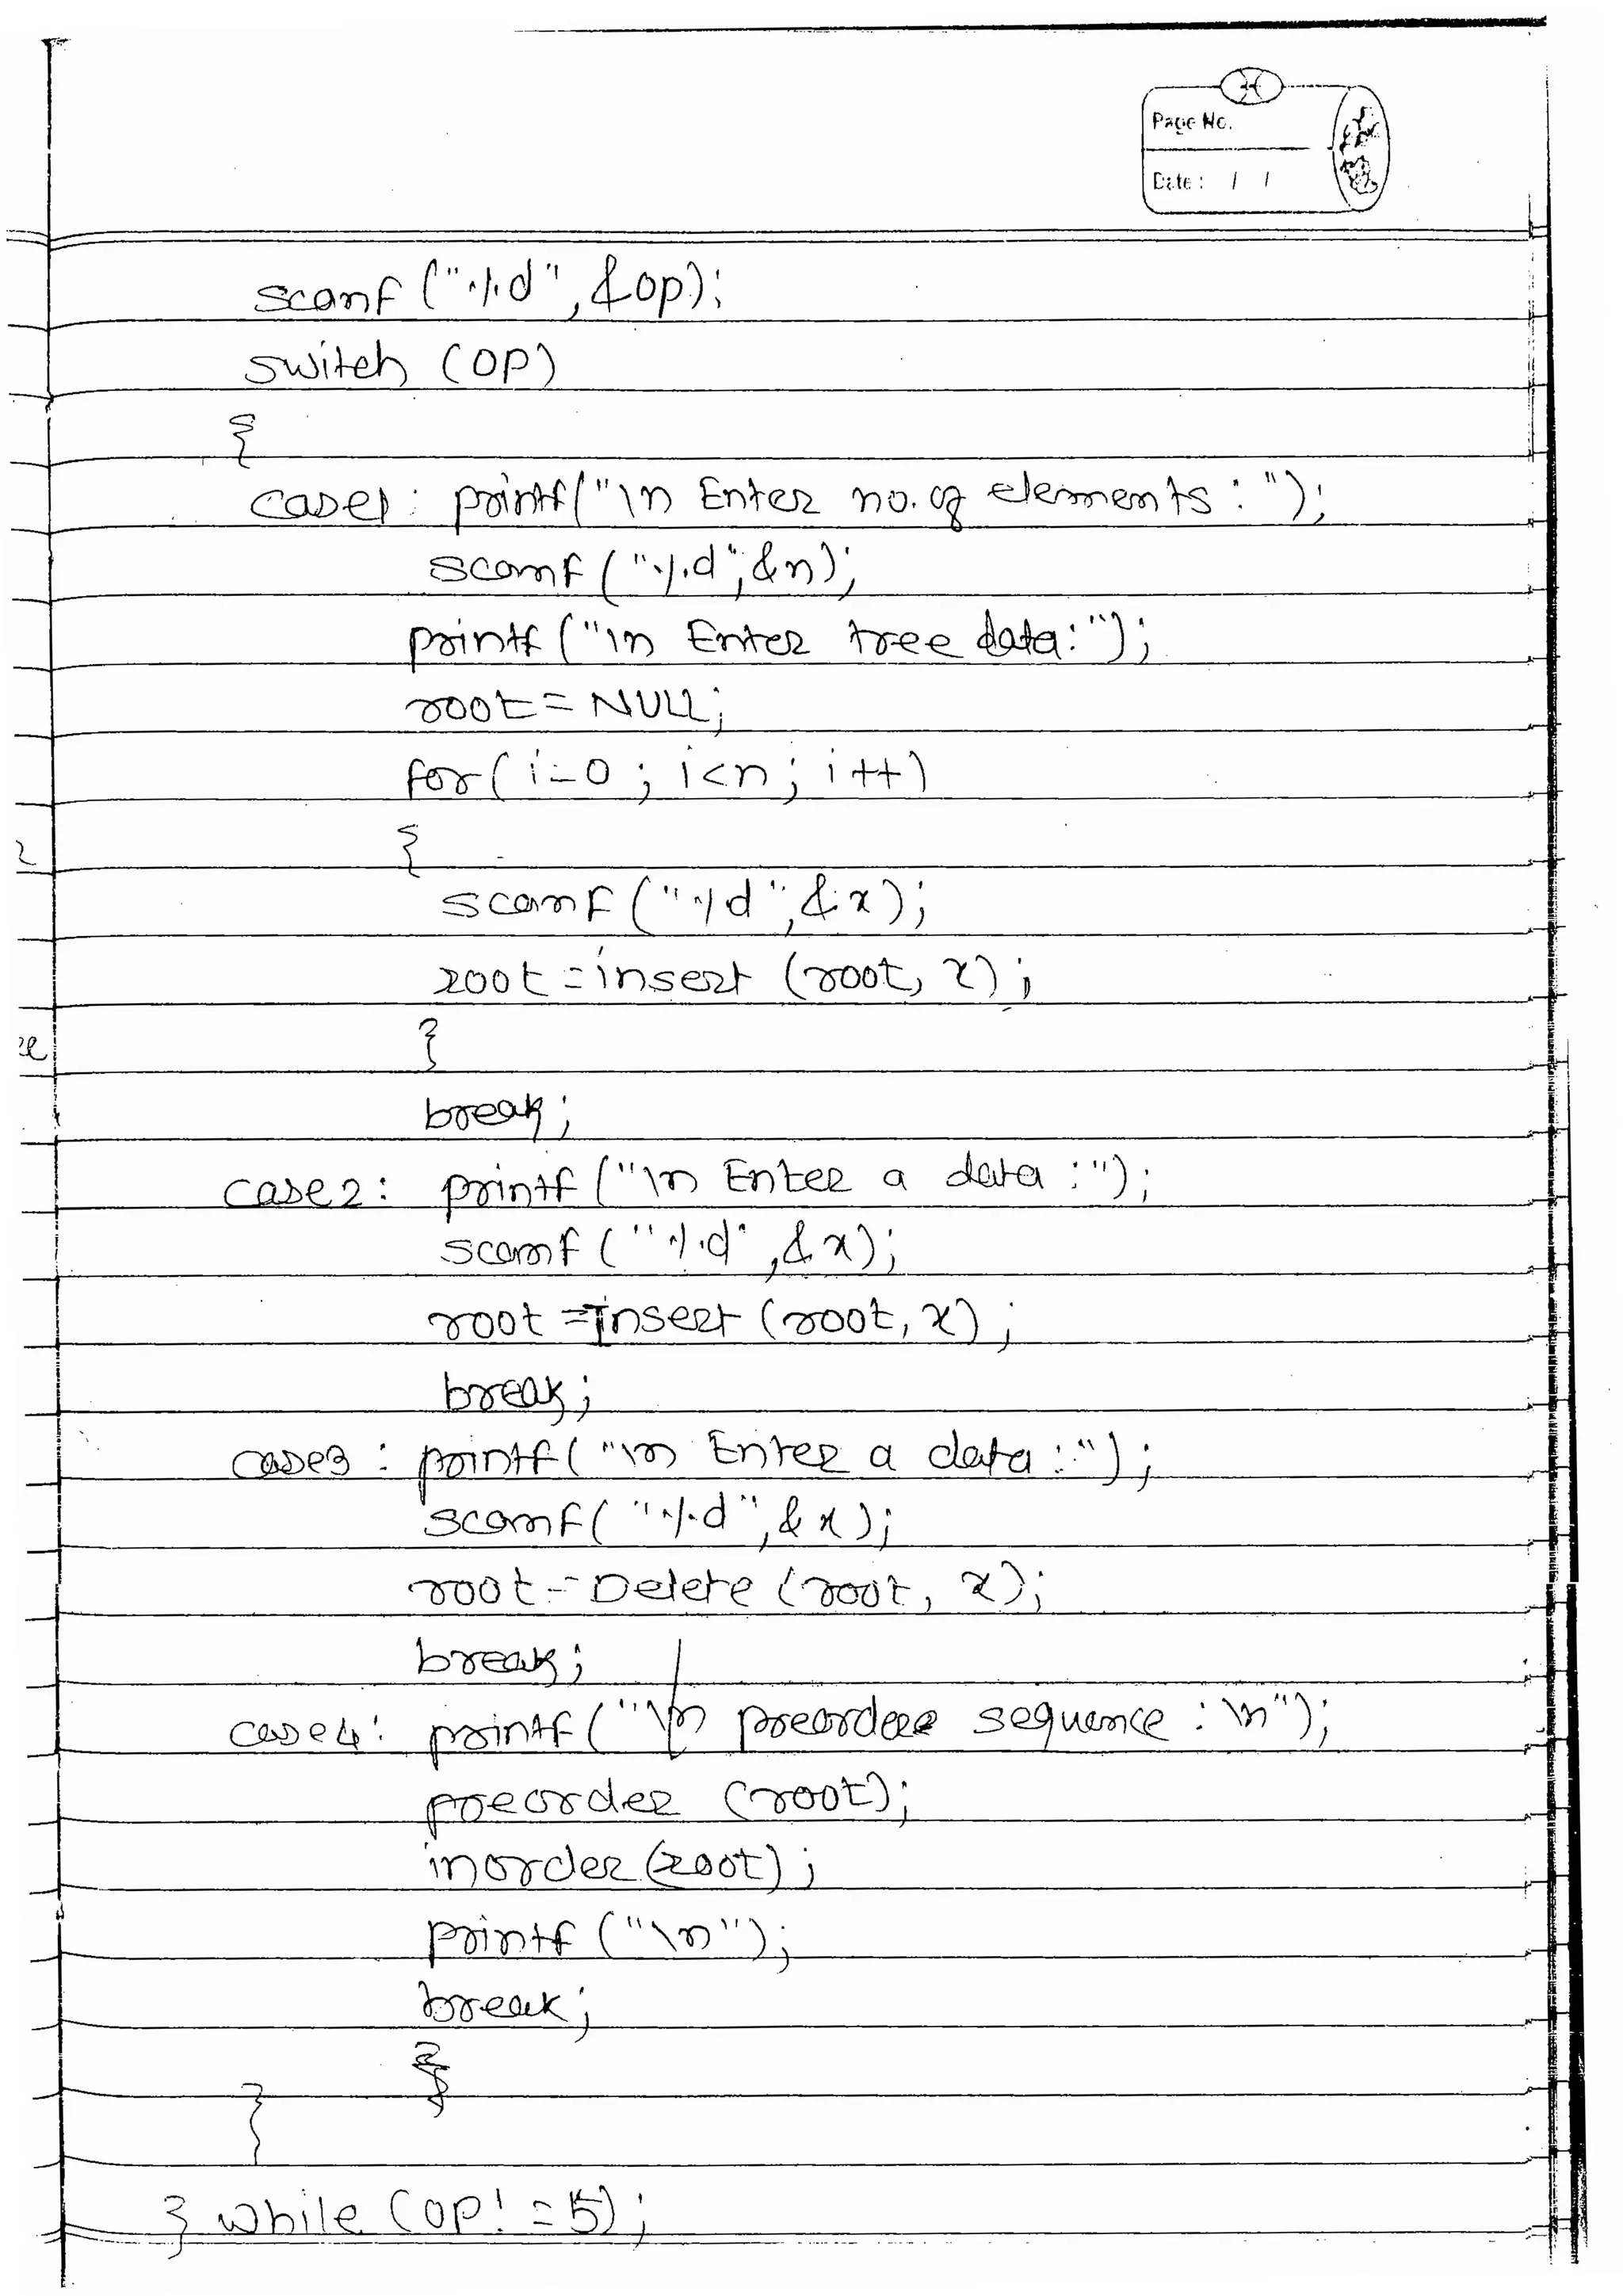 Page No.
Date : / /
scanf ("%d", &op);
switch (op)
{
case1 : printf("\n Enter no. of elements : ");
scanf ("%d", &n);
printf ("\n Enter tree data:");
root = NULL;
for ( i=0 ; i<n ; i++)
{
scanf ("%d", &x);
root = insert (root, x) ;
}
break;
case2 : printf ("\n Enter a data :");
scanf ("%d", &x);
root = Insert (root, x) ;
break;
case3 : printf ("\n Enter a data :") ;
scanf( "%d", & x);
root = Delete (root, x);
break;
case4 : printf ("\n preorder sequence : \n");
preorder (root);
inorder (root) ;
printf ("\n");
break;
}
} while (op! = 5);